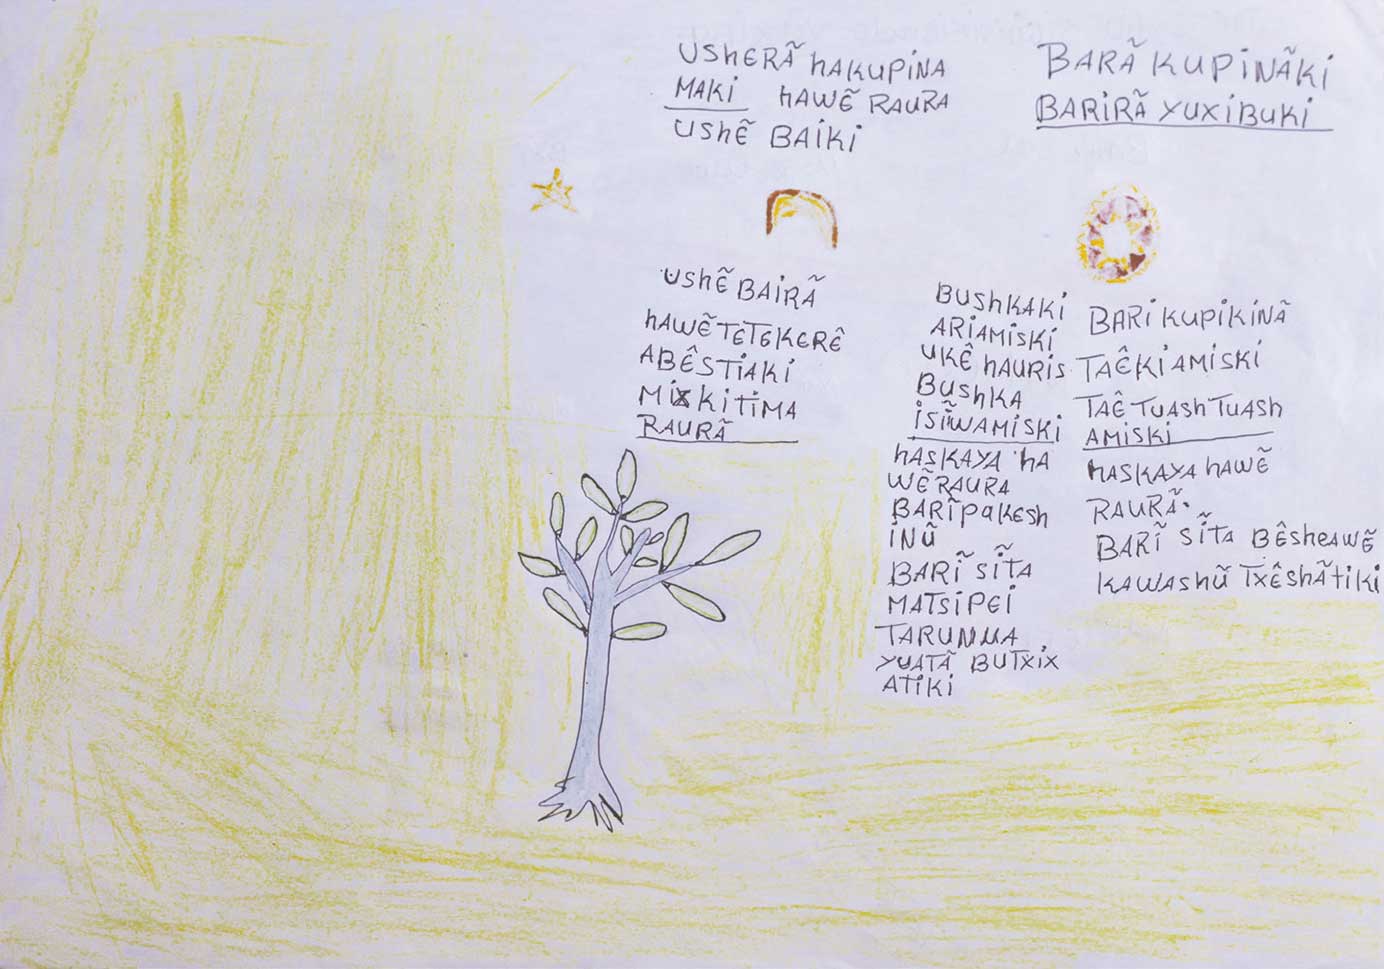 USHERÃ HAKUPINA
MAKI HAWẼ RAURA
USHẼ BAIKI
BARÃ KUPINÃKI
BARIRÃ YUXIBUKI
USHẼ BAIRÃ
HAWẼ TETEKERÊ
ABÊSTIAKI
MIXKITIMA
RAURÃ
BUSHKAKI
ARIAMISKI
UKÊ HAURIS
BUSHKA
ISĨWAMISKI
HASKAYA HA
WẼ RAURA
BARĨ PAKESH
INŨ
BARĨ SĨTA
MATSIPEI
TARUNUA
YUATÃ BUTXIX
ATIKI
BARI KUPIKINÃ
TAÊKIAMISKI
TAÊ TUASH TUASH
AMISKI
HASKAYA HAWẼ
RAURÃ.
BARĨ SĨTA BÊSHEAWẼ
KAWASHŨ TXÊSHÃTIKI